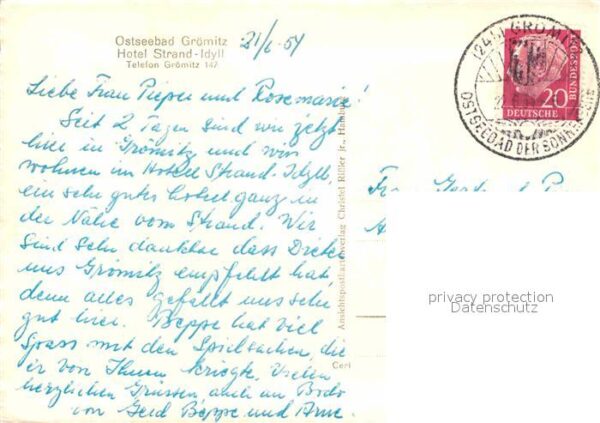 Ostseebad Grömitz
Hotel Strand-Idyll
Telefon Grömitz 147
21/6.54
Liebe Frau Pieper und Rosemarie!
Seit 2 Tagen sind wir jetzt
hier in Grömitz und wir
wohnen im Hotell Strand-Idyll,
ein sehr gutes hotel ganz in
der Nähe vom Strand. Wir
sind sehr dankbar dass Dieter
uns Grömitz empfehlt hat,
denn alles gefällt uns sehr
gut hier. Beppe hat viel
Spass mit den Spielsachen, die
er von Ihnen kriegte. Vielen
herzlichen Grüssen, auch an Bodo
von Gerd Beppe und Arne.
Ansichtspostkartenverlag Christel Rißler jr.,
Cerl
(24b) GRÖMITZ
OSTSEEBAD DER SONNENSEITE
20
DEUTSCHE
BUNDESPOST
Frau
privacy protection
Datenschutz